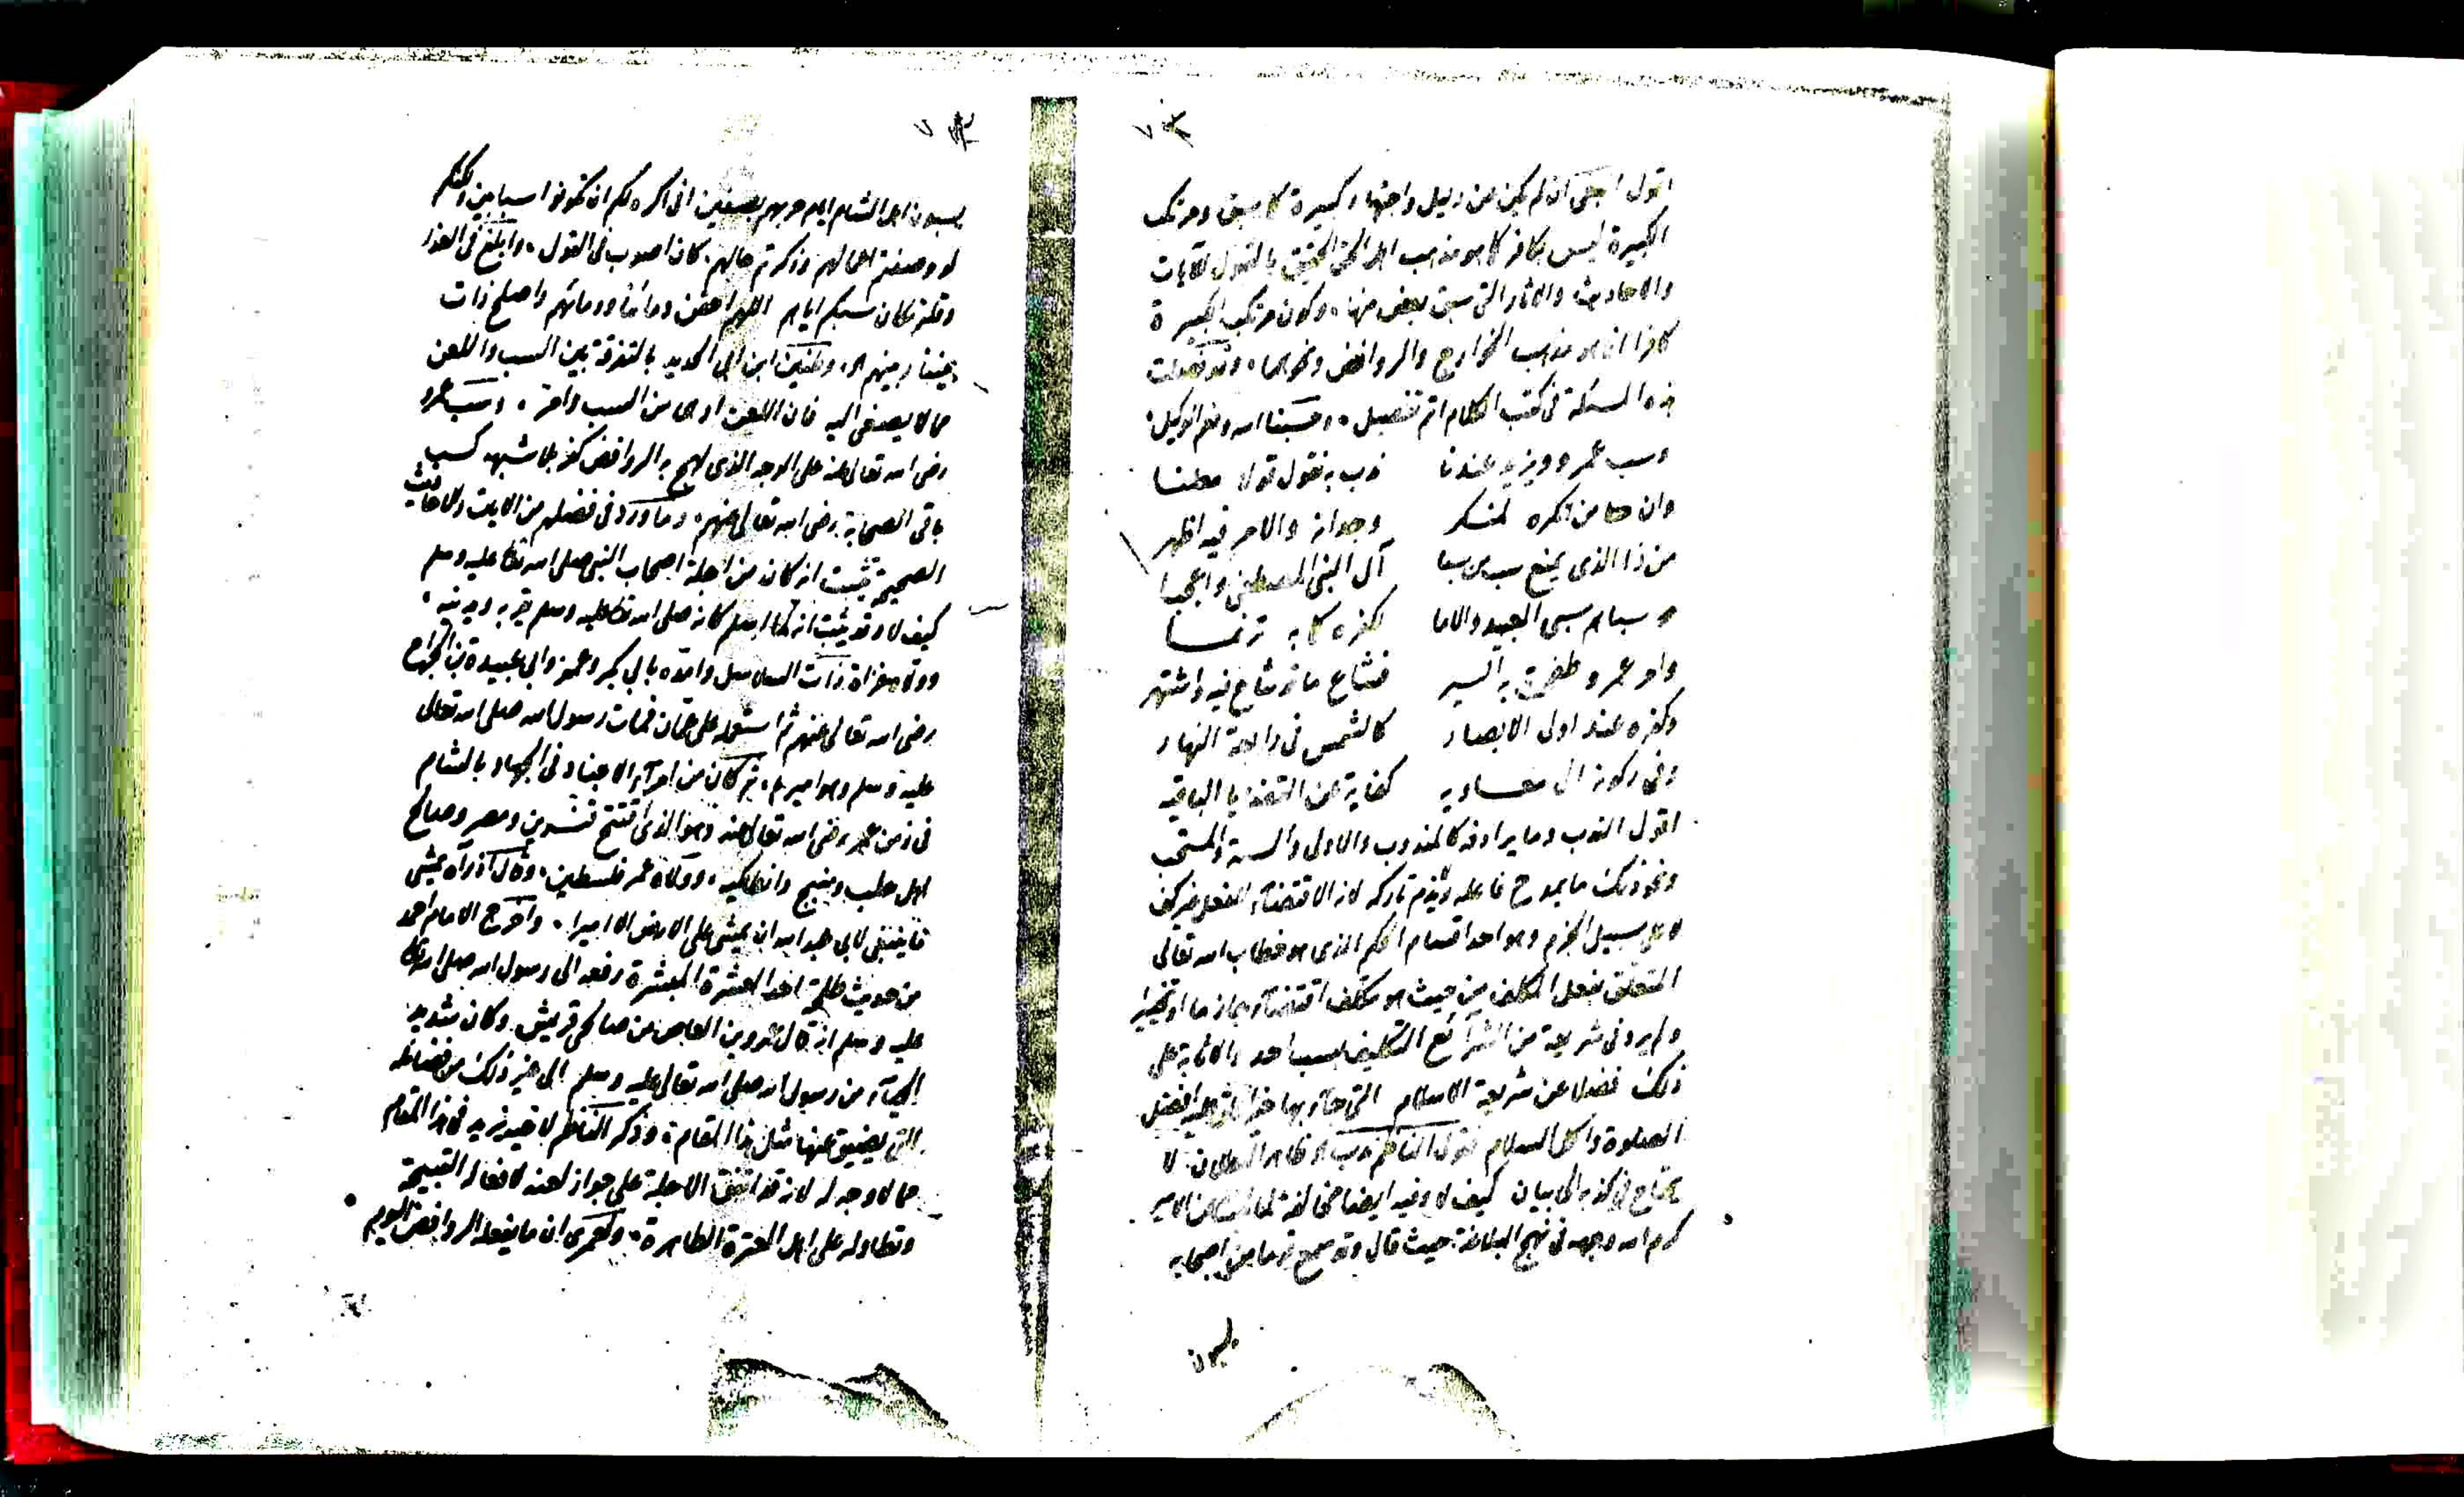 ٧٣
اقول اجلى ان لم يكن من دليل واجتهاد كبيرة كما سبق ومرتكب
الكبيرة ليس بكافر كما هو مذهب اهل الحق الحقيق بالقبول للآيات
والاحاديث والاثار التى سبق بعض منها، وكون مرتكب الكبيرة
كافرا انما هو مذهب الخوارج والروافض ونحوهما، وقد فصلت
هذه المسئلة فى كتب الكلام اتم تفصيل، وحسبنا الله ونعم الوكيل،
وسب عمرو ويزيد عندنا ندب به نقول قولا معلنا
وان من انكره لمنكر وجدانه والامر فيه اظهر
من ذا الذى يمنع سب من سبا آل النبى المصطفى واعجبا
سباهم سبى العبيد والاما لكفره كما به ترنما
وامر عمرو طفحت به السير فشاع ما قد شاع فيه واشتهر
وكفره عند اولى الابصار كالشمس فى رابعة النهار
وفى ركونه الى معاويه كفاية عن القضايا الباقيه
اقول الندب وما يرادفه كالمندوب والاولى والسنة والمستحب
ونحو ذلك ما يمدح فاعله ولا يذم تاركه لانه الاقتضآء لفعل غير كف
لا على سبيل الجزم وهو احد اقسام الحكم الذى هو خطاب الله تعالى
المتعلق بفعل المكلف من حيث هو مكلف اقتضآء جازما او تخييرا
ولم يرد فى شريعة من الشرآئع التكليف بسب احد والاثابة على
ذلك فضلا عن شريعة الاسلام التى جآء بها خير الانام عليه افضل
الصلوة واكمل السلام فقول الناظم ندب ظاهر البطلان لا
يحتاج فى كذبه الى بيان كيف لا وفيه ايضا مخالفة لما ثبت عن الامير
كرم الله وجهه فى نهج البلاغة حيث قال وقد سمع قوما من اصحابه
يسبون
يسبون اهل الشام ايام حربهم بصفين انى اكره لكم ان تكونوا سبابين ولكنكم
لو وصفتم اعمالهم وذكرتم حالهم، كان اصوب فى القول، وابلغ فى العذر
وقلتم مكان سبكم اياهم اللهم احقن دمآئنا ودمائهم واصلح ذات
بيننا وبينهم اه، وتفرقة ابن ابى الحديد بالتفرقة بين السب واللعن
مما لا يصغى اليه فان اللعن ادهى من السب وامر، وسب عمرو
رضى الله تعالى عنه على الوجه الذى لهج به الروافض كفر بلا شبهه كسب
باقى الصحابة رضى الله تعالى عنهم، وما ورد فى فضلهم من الايات والاحاديث
الصحيحة يثبت انه كان من اجلة اصحاب النبى صلى الله تعالى عليه وسلم
كيف لا وقد ثبت انه لما اسلم كان صلى الله تعالى عليه وسلم يقربه ويدنيه،
وولاه غزاة ذات السلاسل وامده بابى بكر وعمر وابى عبيدة بن الجراح
رضى الله تعالى عنهم ثم استعمله على عمان فمات رسول الله صلى الله تعالى
عليه وسلم وهو اميرها، ثم كان من امرآء الاجناد فى الجهاد بالشام
فى زمن عمر رضى الله تعالى عنه وهو الذى افتتح قنسرين ومصر وصالح
اهل حلب ومنبج وانطاكيه، وولاه عمر فلسطين، وقال اذ رآه يمشى
ما ينبغى لابى عبد الله ان يمشى على الارض الا اميرا، واخرج الامام احمد
من حديث طلحة احد العشرة المبشرة رفعه الى رسول الله صلى الله تعالى
عليه وسلم انه قال عمرو بن العاص من صالحى قريش وكان شديد
الحيآء من رسول الله صلى الله تعالى عليه وسلم الى غير ذلك من فضائله
التى يضيق عنها مثل هذا المقام، وذكر الناظم يزيد فى هذا المقام
مما لا وجه له لانه قد اتفق الاجلة على جواز لعنه لافعاله القبيحة
وتطاوله على اهل العترة الطاهرة، ولعمرى ان ما يفعله الروافض اليوم